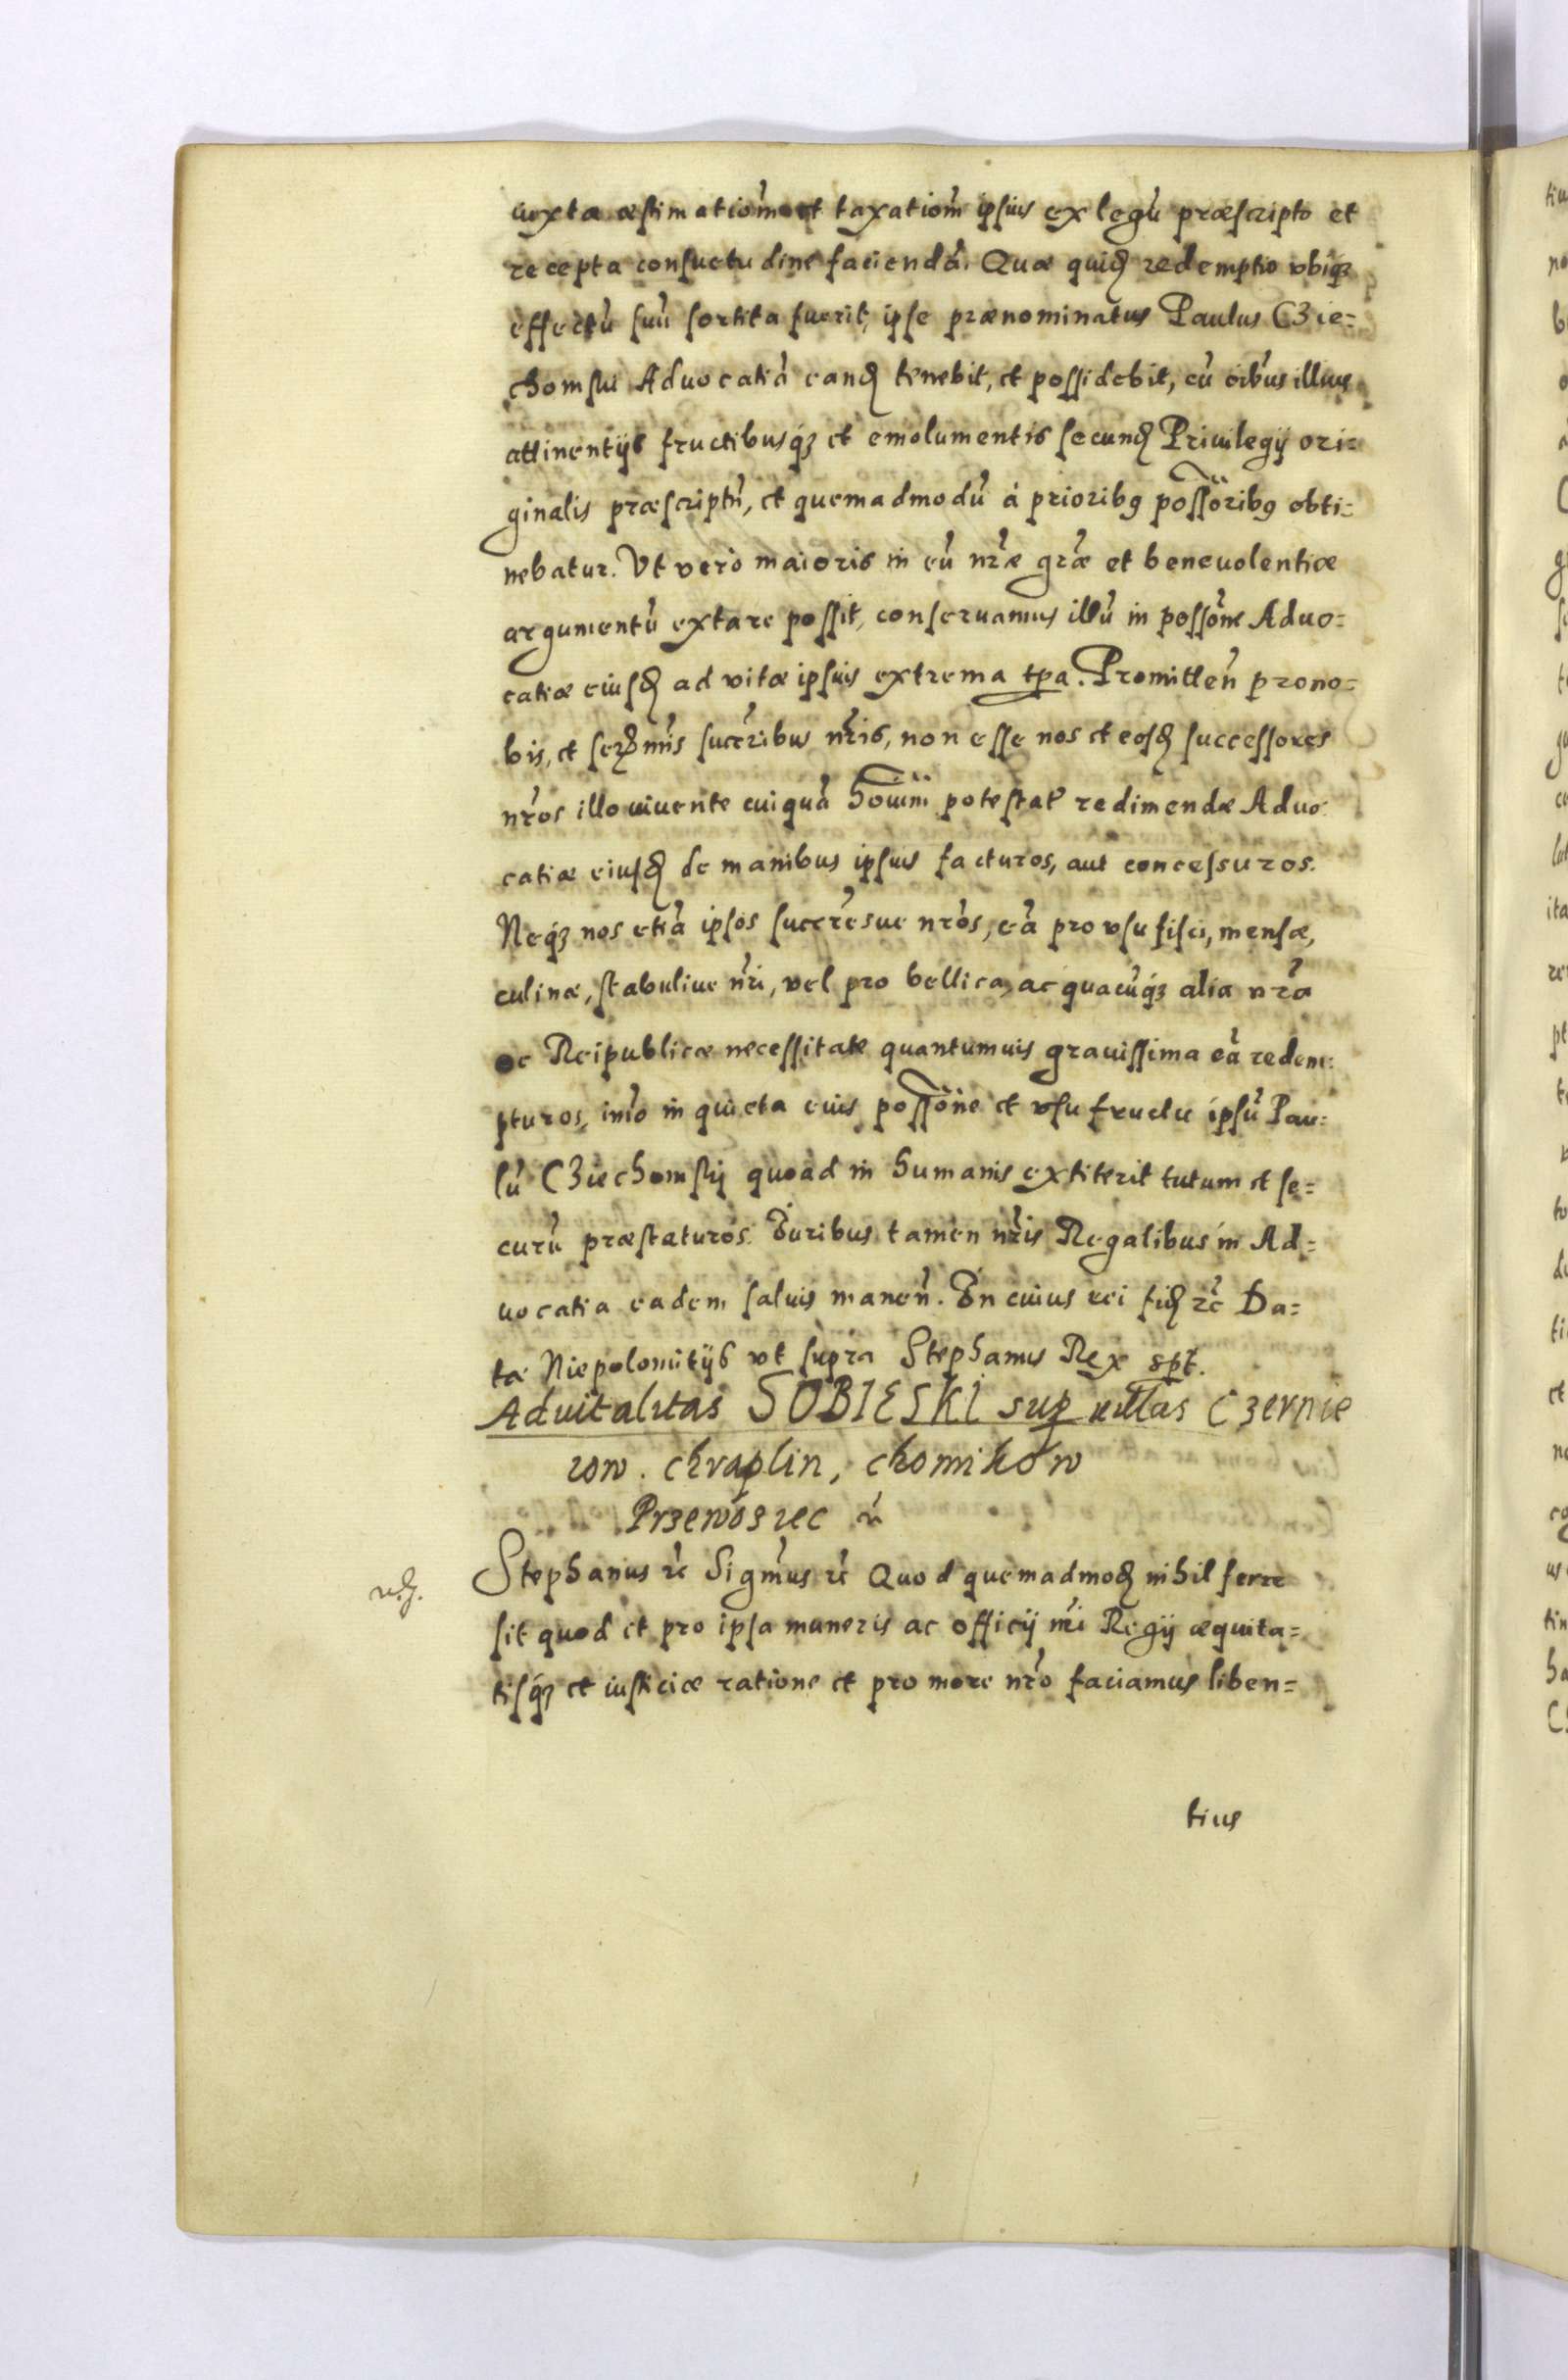 iuxta æstimatiom̃ et taxatiom̃ ipsius ex legũ præscripto et
recepta consuetudine faciendã. Quæ quid̃ redemptio ubiq́3
effectũ suũ sortita fuerit, ipse prænominatus Paulus C3ie=
chomski Aduocatiã eand̃ tenebit, et possidebit, cũ oĩbus illius
attinentijs fructibusq́3 et emolumentis secund̃ Priuilegij ori=
ginalis præscriptũ, et quemadmodũ à prioribꝯ possõribꝯ obti=
nebatur. Vt verò maioris in eũ nr̃æ gr̃æ et beneuolentiæ
argumentũ extare possit, conseruamus illũ in possõne Aduo=
catiæ eiusd̃ ad vitæ ipsius extrema tp̃a. Promitten̄ pro no=
bis, et ser̃mis succr̃ibus nr̃is, non esse nos et eosd̃ successores
nr̃os illo viuente cuiquã hom̃i potestat̃ redimendæ Aduo
catiæ eiusd̃ de manibus ipsius facturos, aut concessuros.
Neq́3 nos etiã ipsos succr̃esue nr̃os, eã pro vsu fisci, mensæ,
culinæ, stabuliue nr̃i, vel pro bellica, ac quacũq́3 alia nr̃a
ac Reipublicæ necessitate quantumuis grauissima eã redem=
pturos, imo in quieta eius possõne et vsufructu ipsũ Pau=
lũ C3iechomskij quoad in humanis extiterit tutum et se=
curũ præstaturos. Iuribus tamen nr̃is Regalibus in Ad=
uocatia eadem saluis manen̄. In cuius rei fid̃ rc̃ Da=
tæ Niepolomitijs vt supra Stephanus Rex spt̃.
Aduitalitas SOBIESKI sup villas C3ernie
iow. chraplin, chomikow
Pr3enosiec
Stephanus rc̃ Sigm̃us rc̃ Quod quemadmod̃ nihil ferre
sit quod et pro ipsa muneris ac officij nr̃i Regij æquita=
tisq́3 et iusticiæ ratione et pro more nr̃o faciamus liben=
tius